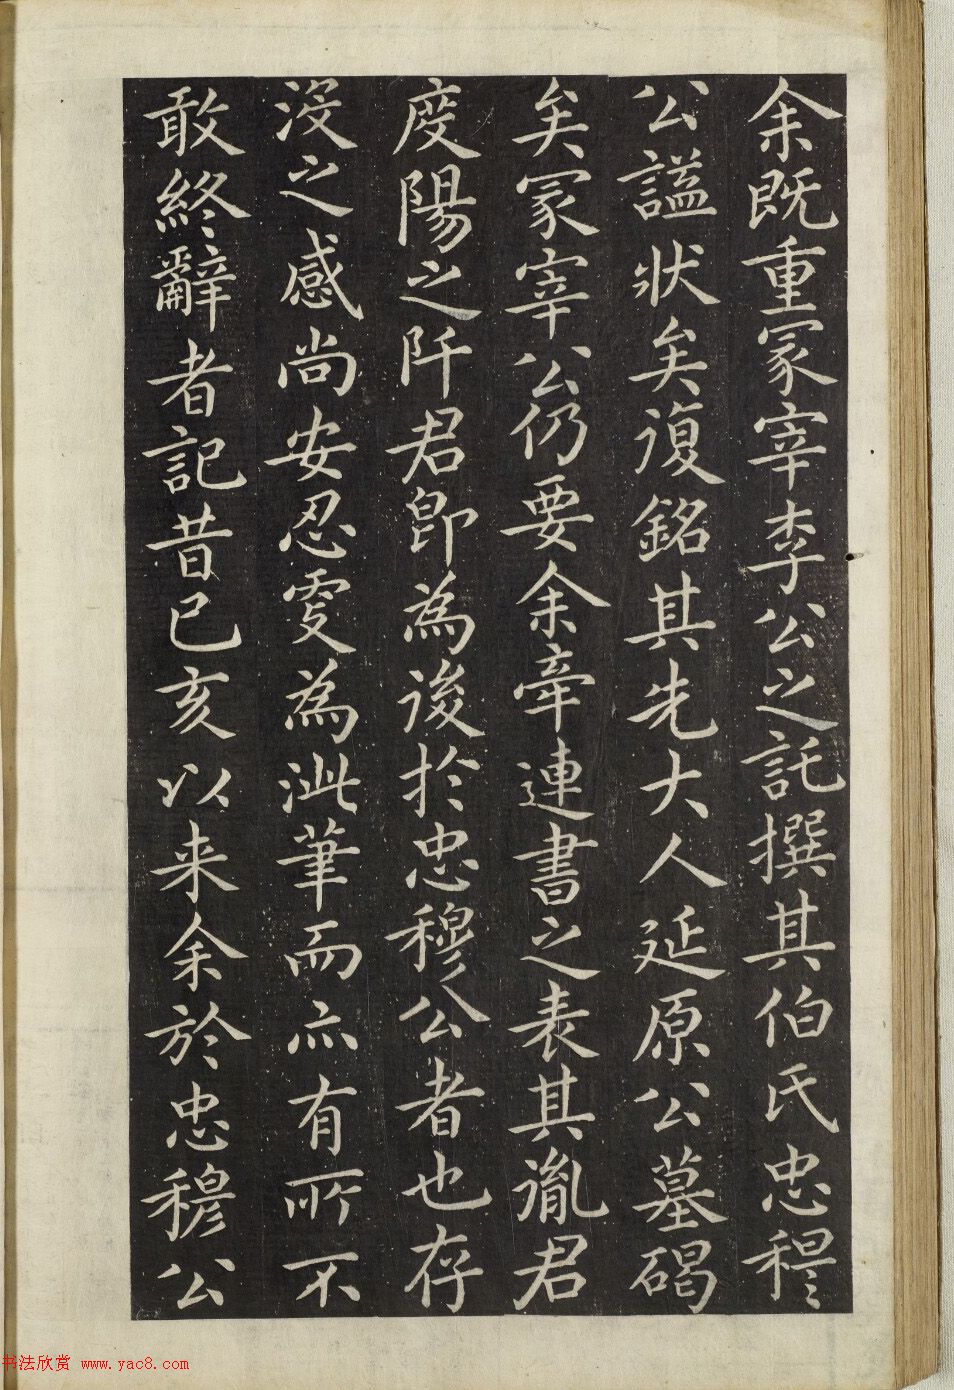 余既重冢宰李公之託撰其伯氏忠穆
公謚狀矣復銘其先大人延原公墓碣
矣冢宰公仍要余牽連書之表其胤君
度陽之阡君即為後於忠穆公者也存
沒之感尚安忍更為泚筆而亦有所不
敢終辭者記昔已亥以来余於忠穆公
书法欣赏 www.yac8.com